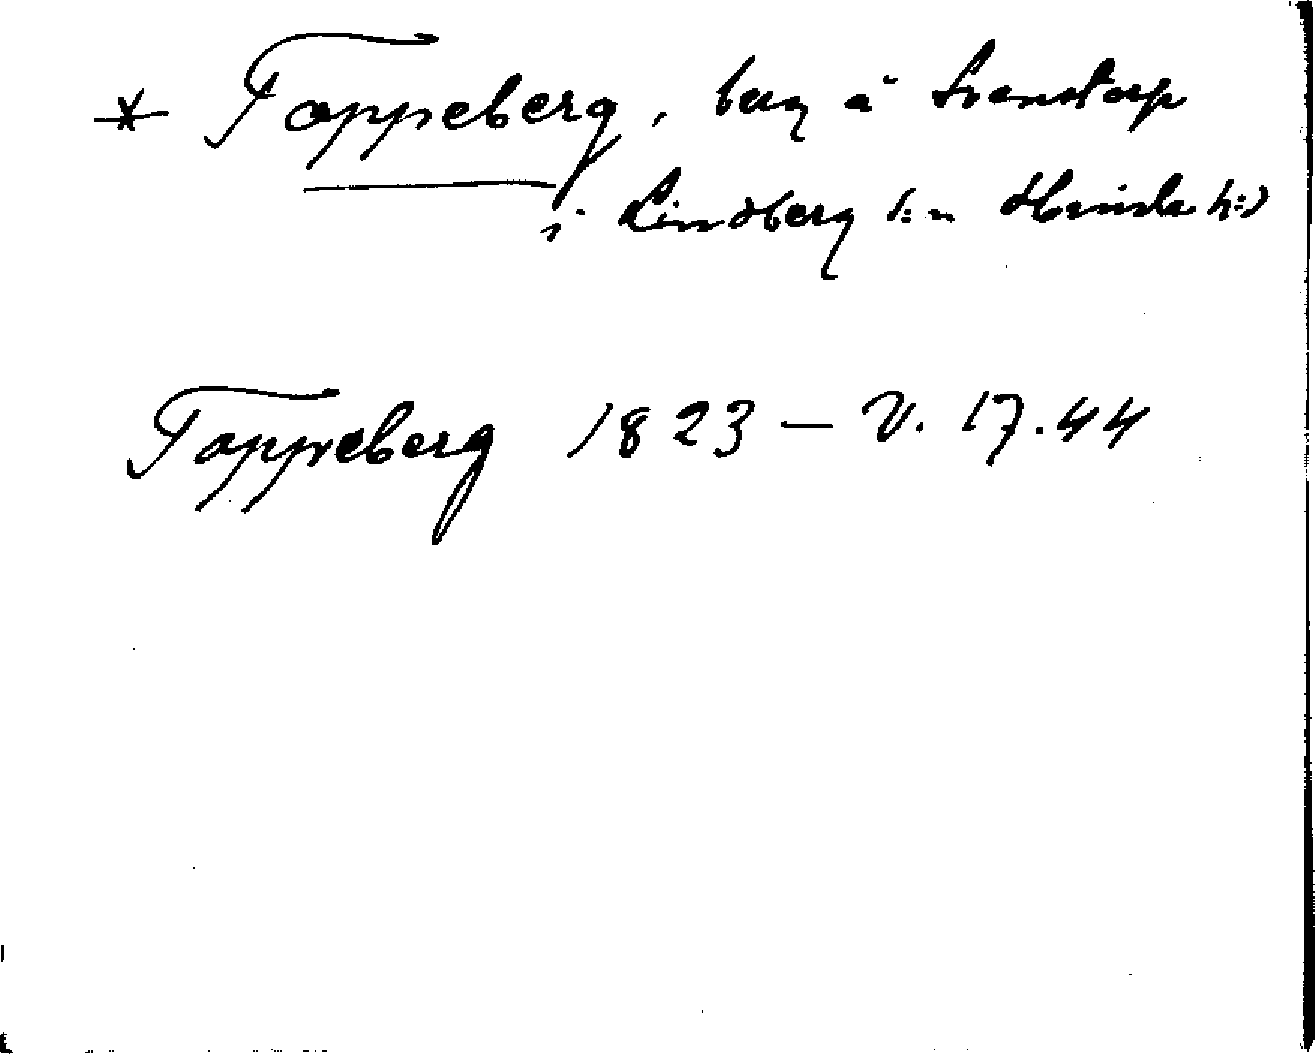 * Toppeberg, berg å Svenstorp
i Lindberg s:n Himle h:d
Toppeberg 1823 – V. 17.44